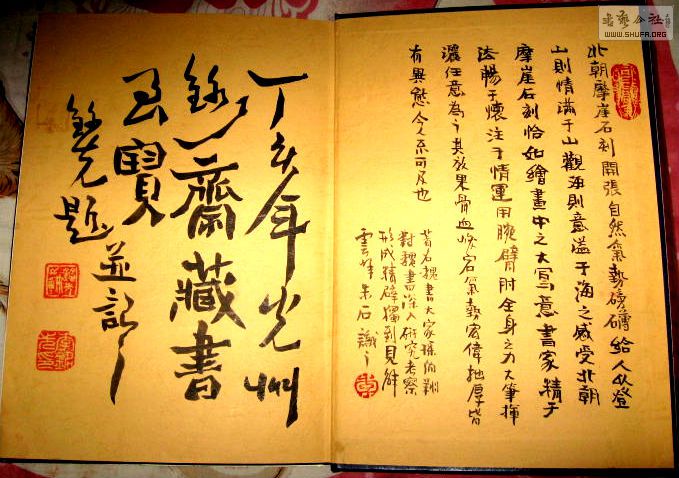 北朝摩崖石刻開張自然氣勢磅礴給人以登
山則情满于山觀海則意溢于海之感受北朝
摩崖石刻恰如繪畫中之大寫意書家精于
法暢于懷注于情運用腕臂肘全身之力大筆揮
濃任意為之其效果骨血峻宕氣勢宏偉拙厚皆
有興令人不可及也
著名魏書大家孫伯翔
對魏書深入研究考察
形成精辟獨到見解
雲峰朱石識之
丁亥年光州
齋藏書
寶
題
並記之
書藝公社
WWW.SHUFA.ORG